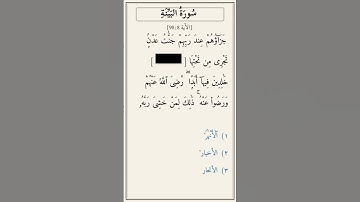 سُورَةُ البَيِّنَةِ
[الآية 8:98]
جَزَآؤُهُمْ عِندَ رَبِّهِمْ جَنَّٰتُ عَدْنٍۢ
تَجْرِى مِن تَحْتِهَا [ ]
خَٰلِدِينَ فِيهَآ أَبَدًا ۖ رَّضِىَ ٱللَّهُ عَنْهُمْ
وَرَضُوا۟ عَنْهُ ۚ ذَٰلِكَ لِمَنْ خَشِىَ رَبَّهُۥ
١) ٱلْأَنْهَٰرُ
٢) الأخبار
٣)